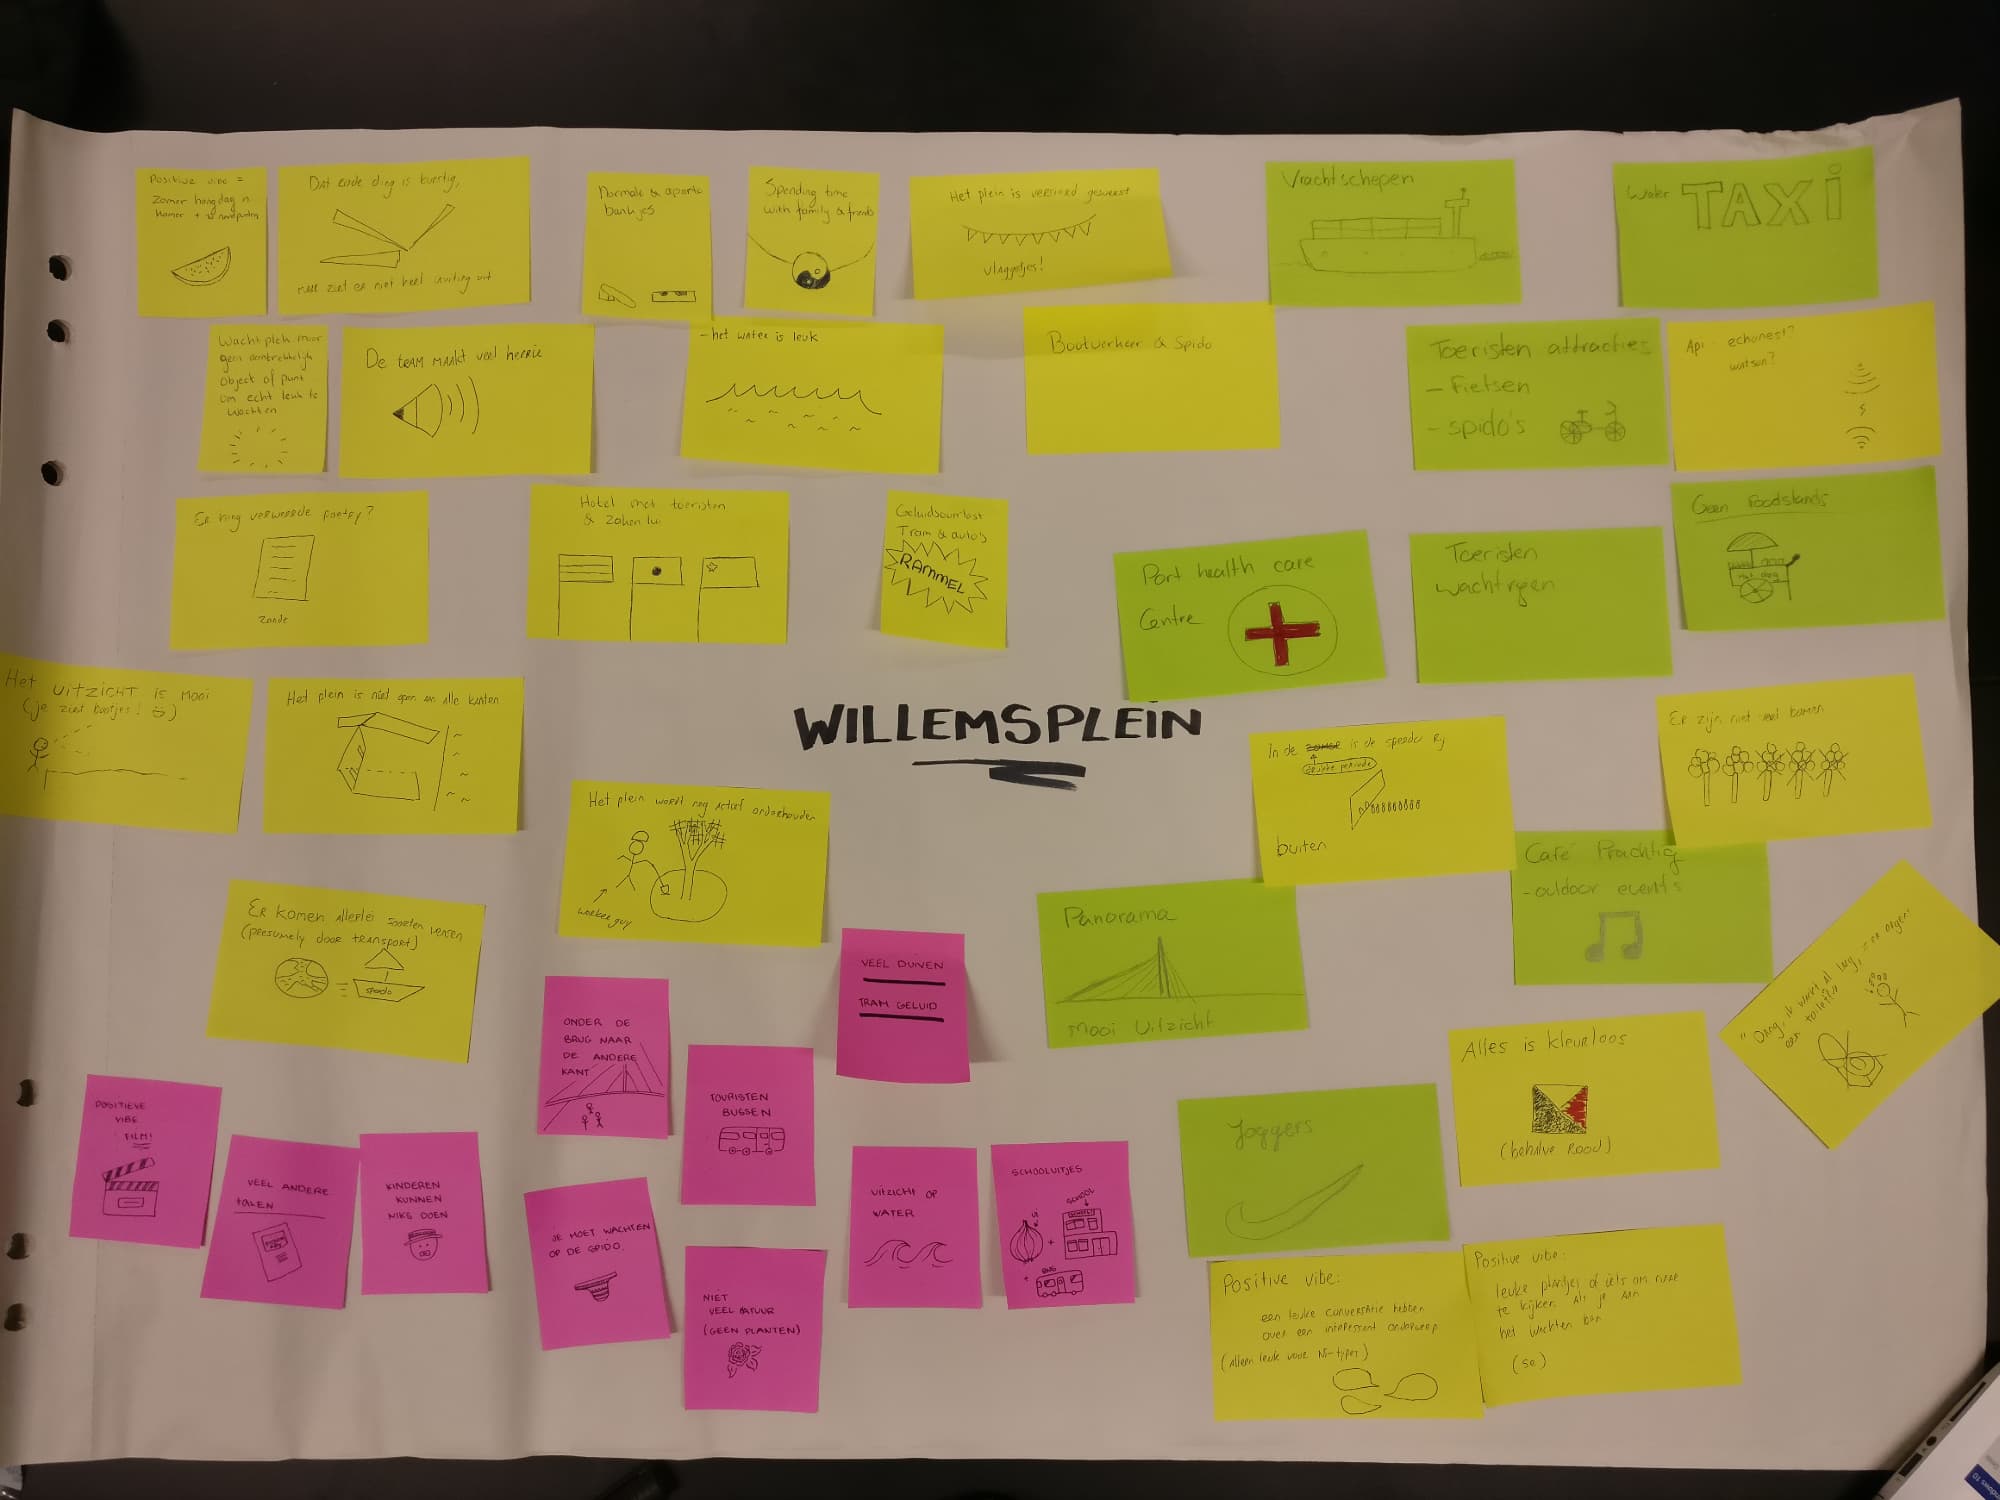 Positive vibe =
Zomer hangdag n
Hamer +
Dat rode ding is kunstig,
maar ziet er niet heel inviting uit
Normale & aparte
bankjes
Spending time
with family & friends
Het plein is versierd geweest
vlaggetjes!
Vrachtschepen
Water TAXI
Wacht plek maar
geen aantrekkelijk
object of punt
om echt leuk te
wachten
De TRAM MAAKT veel herrie
- het water is leuk
Bootverkeer & Spido
Toeristen attracties
- Fietsen
- spido's
Api: echonest?
watson?
Er hing verweerde poetry?
zonde
Hotel met toeristen
& zaken lui
Geluidsoverlast
Tram & auto's
RAMMEL
Port health care
Centre
Toeristen
wachtrijen
Geen Foodstands
Hot dog
Het UITZICHT is mooi
(je ziet bootjes!)
Het plein is niet open aan alle kanten
WILLEMSPLEIN
In de zomer is de speedo Rij
drukke periode
buiten
Er zijn niet veel bomen
Het plein wordt nog actief onderhouden
worker guy
Café Prachtig
- outdoor events
ER komen Allerlei soorten mensen
(presumely door transport)
spido
VEEL DUIVEN
TRAM GELUID
Panorama
Mooi Uitzicht
"Omg, ik wacht al lang,
een toilet?"
ONDER DE
BRUG NAAR
DE ANDERE
KANT
TOURISTEN
BUSSEN
Alles is kleurloos
(behalve ROOD)
POSITIEVE
VIBE
FILM!
VEEL ANDERE
TALEN
KINDEREN
KUNNEN
NIKS DOEN
JE MOET WACHTEN
OP DE SPIDO.
UITZICHT OP
WATER
SCHOOLUITJES
SCHOOL
SCHOOL
UI
+
+
BUS
Joggers
NIET
VEEL NATUUR
(GEEN PLANTEN)
Positive vibe:
een leuke conversatie hebben
over een interessant onderwerp
(Alleen leuk voor N-types)
Positive vibe:
leuke plaatjes of iets om naar
te kijken als je aan
het wachten ben
(se)